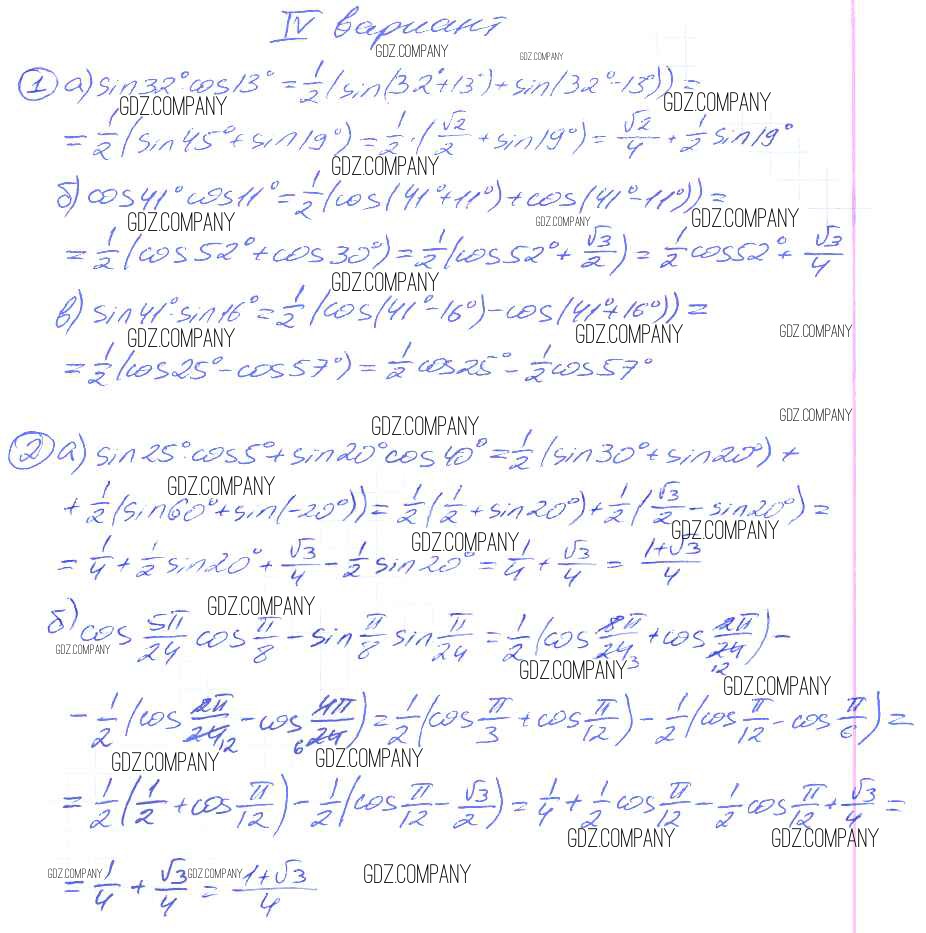 IV вариант
GDZ.COMPANY GDZ.COMPANY
① а) sin32°·cos13° = 1/2 (sin(32°+13°) + sin(32°-13°)) =
GDZ.COMPANY GDZ.COMPANY
= 1/2 (sin45° + sin19°) = 1/2 · (√2/2 + sin19°) = √2/4 + 1/2 sin19°
GDZ.COMPANY
б) cos41° cos11° = 1/2 (cos(41°+11°) + cos(41°-11°)) =
GDZ.COMPANY GDZ.COMPANY GDZ.COMPANY
= 1/2 (cos52° + cos30°) = 1/2 (cos52° + √3/2) = 1/2 cos52° + √3/4
GDZ.COMPANY
в) sin41°·sin16° = 1/2 (cos(41°-16°) - cos(41°+16°)) =
GDZ.COMPANY GDZ.COMPANY GDZ.COMPANY
= 1/2 (cos25° - cos57°) = 1/2 cos25° - 1/2 cos57°
GDZ.COMPANY GDZ.COMPANY
② а) sin25°·cos5° + sin20° cos40° = 1/2 (sin30° + sin20°) +
GDZ.COMPANY
+ 1/2 (sin60° + sin(-20°)) = 1/2 (1/2 + sin20°) + 1/2 (√3/2 - sin20°) =
GDZ.COMPANY GDZ.COMPANY
= 1/4 + 1/2 sin20° + √3/4 - 1/2 sin20° = 1/4 + √3/4 = (1+√3)/4
GDZ.COMPANY
б) cos 5π/24 cos π/8 - sin π/8 sin π/24 = 1/2 (cos 8π/24 3 + cos 2π/24 12) -
GDZ.COMPANY GDZ.COMPANY GDZ.COMPANY
- 1/2 (cos 2π/24 12 - cos 4π/24 6) = 1/2 (cos π/3 + cos π/12) - 1/2 (cos π/12 - cos π/6) =
GDZ.COMPANY GDZ.COMPANY
= 1/2 (1/2 + cos π/12) - 1/2 (cos π/12 - √3/2) = 1/4 + 1/2 cos π/12 - 1/2 cos π/12 + √3/4 =
GDZ.COMPANY GDZ.COMPANY
GDZ.COMPANY GDZ.COMPANY GDZ.COMPANY
= 1/4 + √3/4 = (1+√3)/4